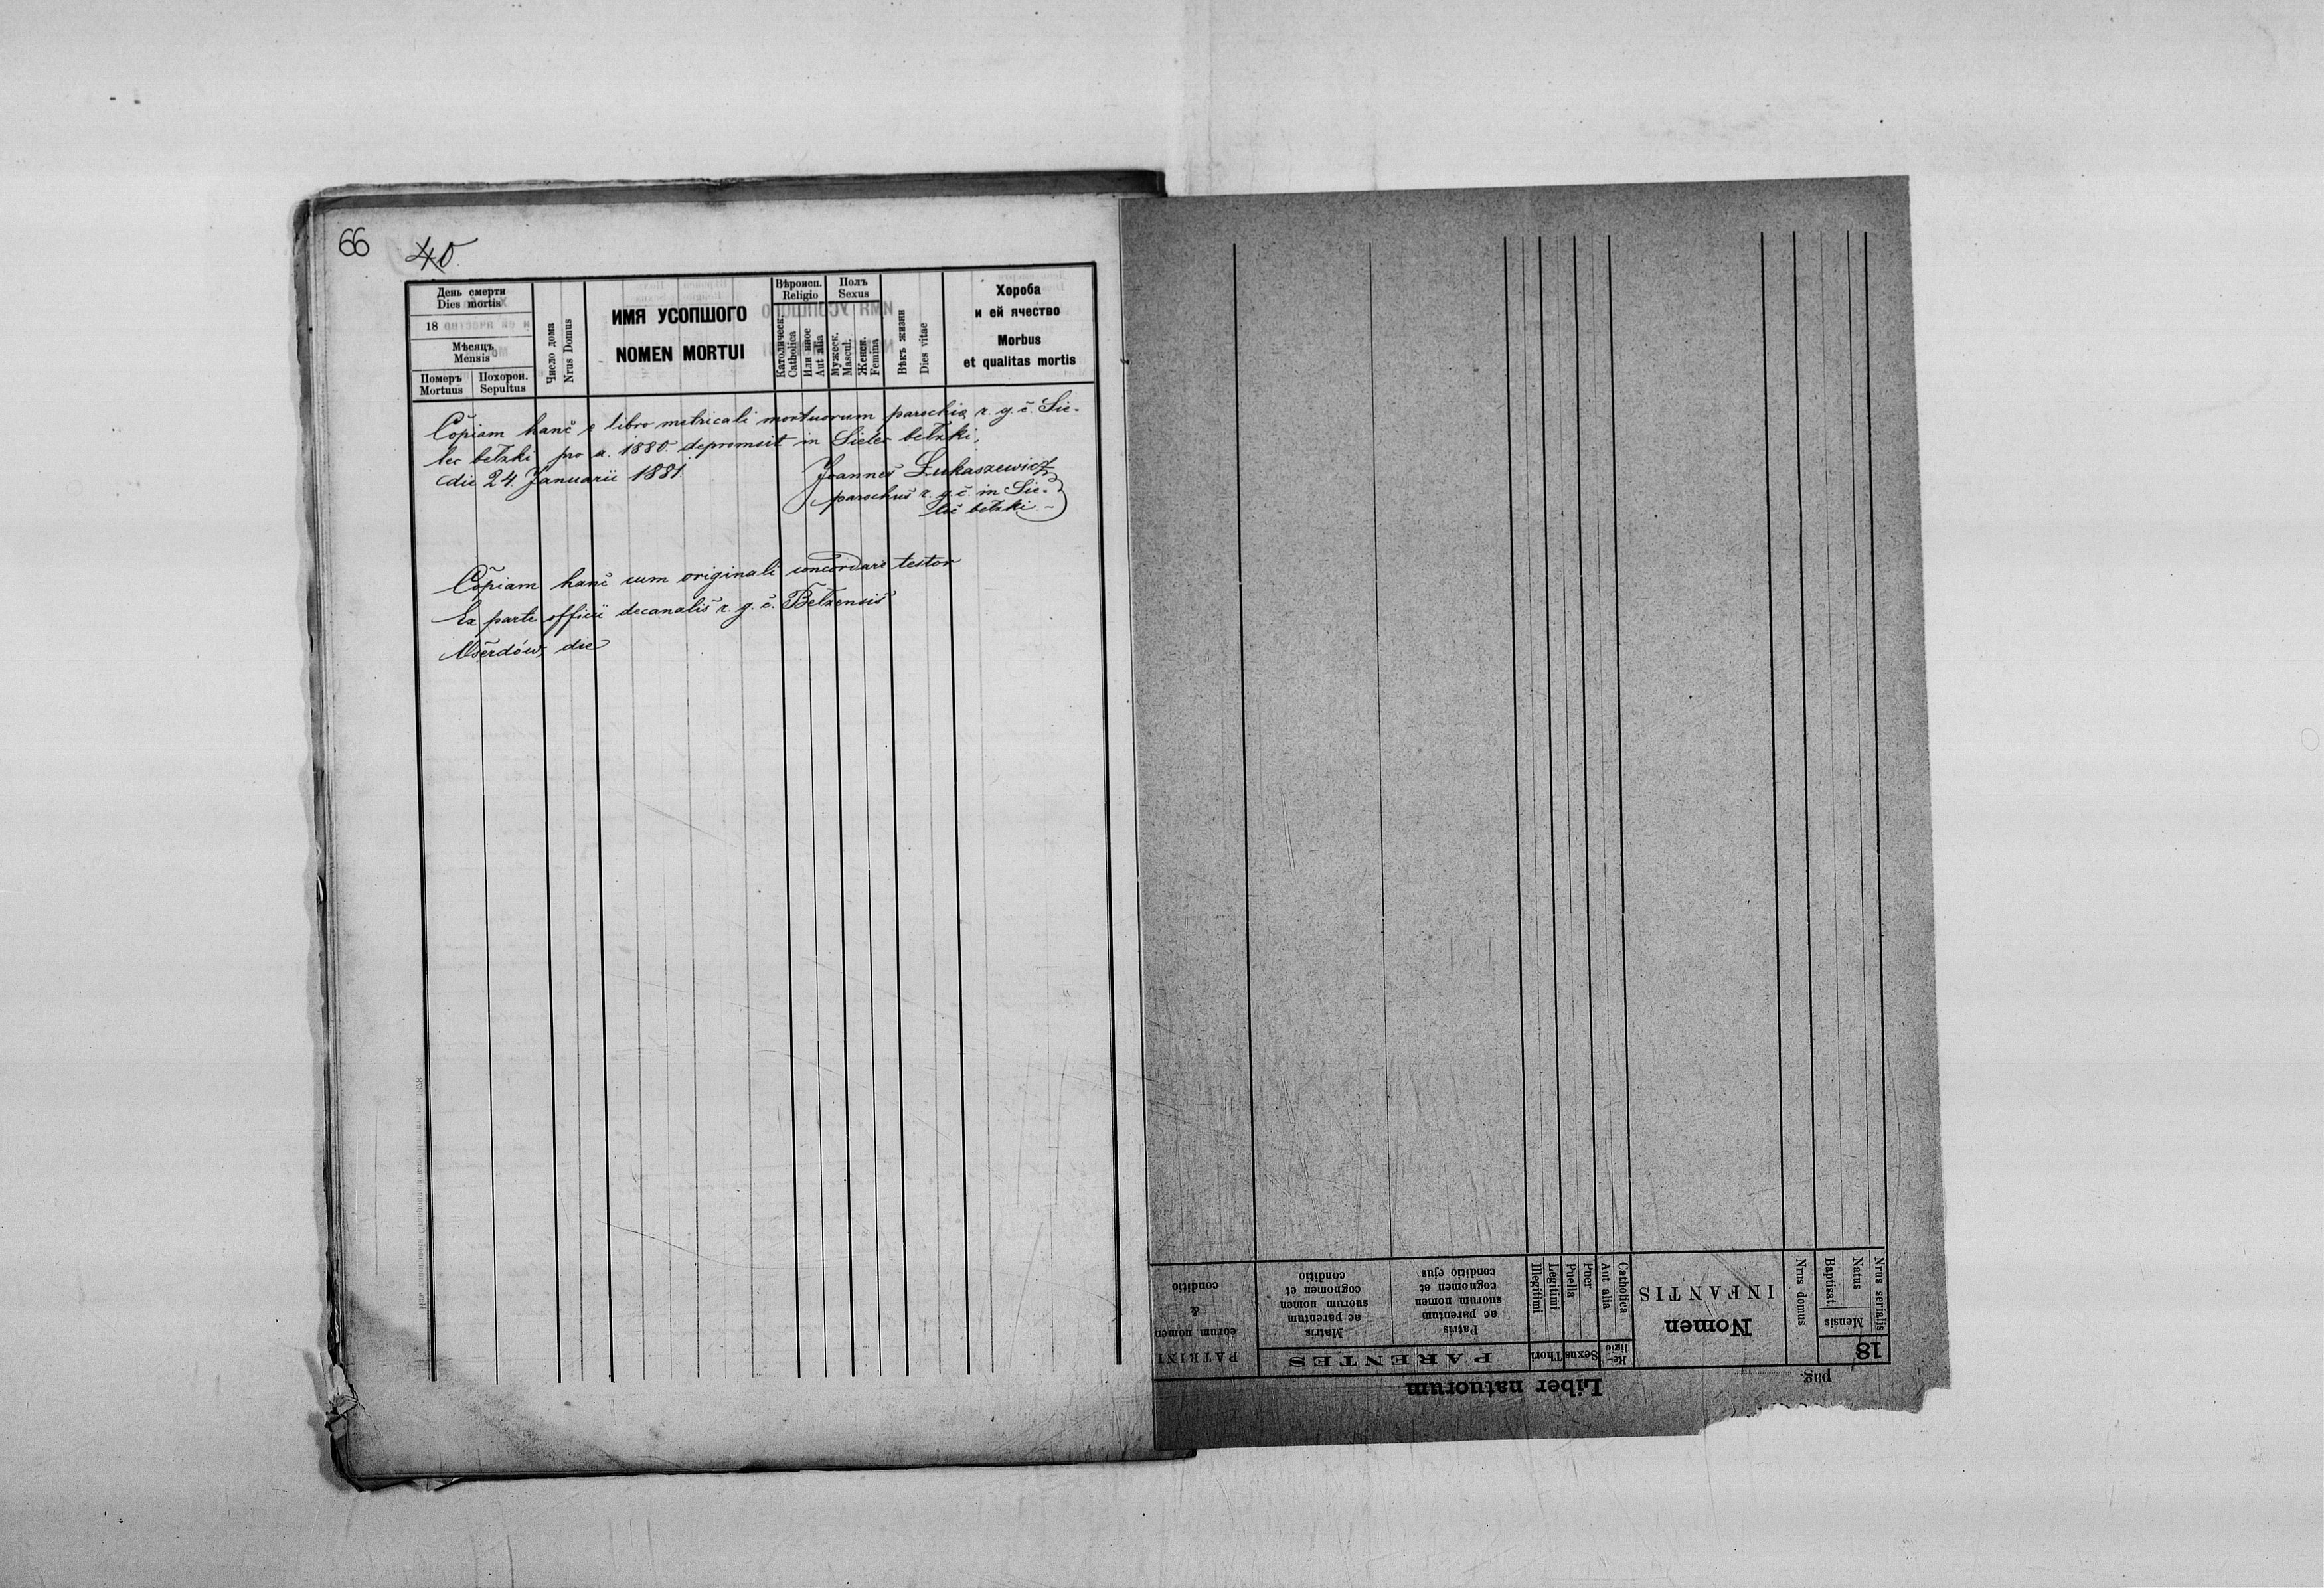 66
40
День смерти
Dies mortis
18
Мѣсяць
Mensis
Померъ
Mortuus
Похорон.
Sepultus
Число дома
Nrus Domus
ИМЯ УСОПШОГО
NOMEN MORTUI
Вѣроисп.
Religio
Католическ.
Catholica
Или иное
Aut alia
Полъ
Sexus
Мужеск.
Mascul.
Женск.
Femina
Вѣкъ жизни
Dies vitae
Хороба
и ей ячество
Morbus
et qualitas mortis
Copiam hanc e libro metricali mortuorum parochiæ r. g. c. Sie-
lec bełzki pro a. 1880. depromsit in Sielec bełzki,
die 24. Januarii 1881.
Joannes Łukaszewicz
parochus r. g. c. in Sie-
lec bełzki. –
Copiam hanc cum originali concordare testor
Ex parte officii decanalis r. g. c. Bełzensis
Oserdów, die
Liber natuorum
pag.
18
Nrus serialis
Mensis
Natus
Baptisat.
Nrus domus
Nomen
INFANTIS
Re-
ligio
Catholica
Aut alia
Sexus
Puer
Puella
Thori
Legitimi
Illegitimi
PARENTES
Patris
ac parentum
suorum nomen
cognomen et
conditio ejus
Matris
ac parentum
suorum nomen
cognomen et
conditio
PATRINI
eorum nomen
&
conditio